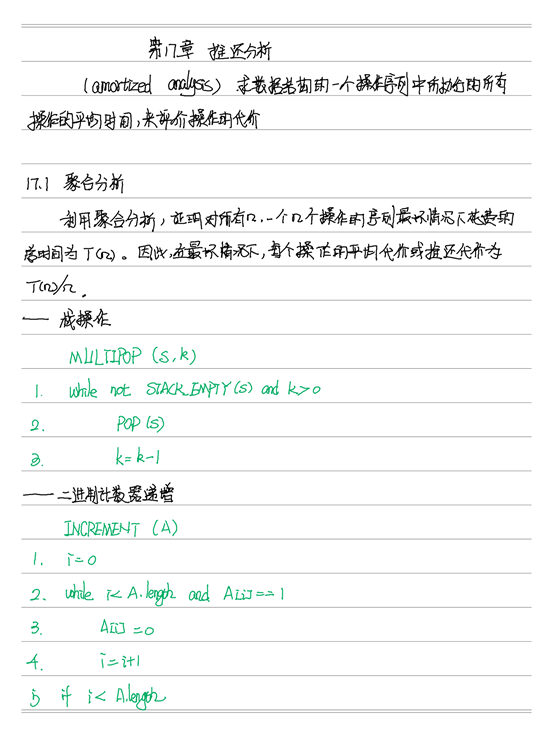 第17章 摊还分析
(amortized analysis) 求数据结构的一个操作序列中所执行的所有
操作的平均时间,来评价操作的代价
17.1 聚合分析
利用聚合分析,证明对所有n,一个n个操作的序列最坏情况下花费的
总时间为T(n)。因此,在最坏情况下,每个操作的平均代价或摊还代价为
T(n)/n.
—— 栈操作
MULTIPOP (S,k)
1. while not STACK_EMPTY(S) and k>0
2. POP(S)
3. k=k-1
—— 二进制计数器递增
INCREMENT (A)
1. i=0
2. while i< A.length and A[i]==1
3. A[i]=0
4. i=i+1
5 if i< A.length